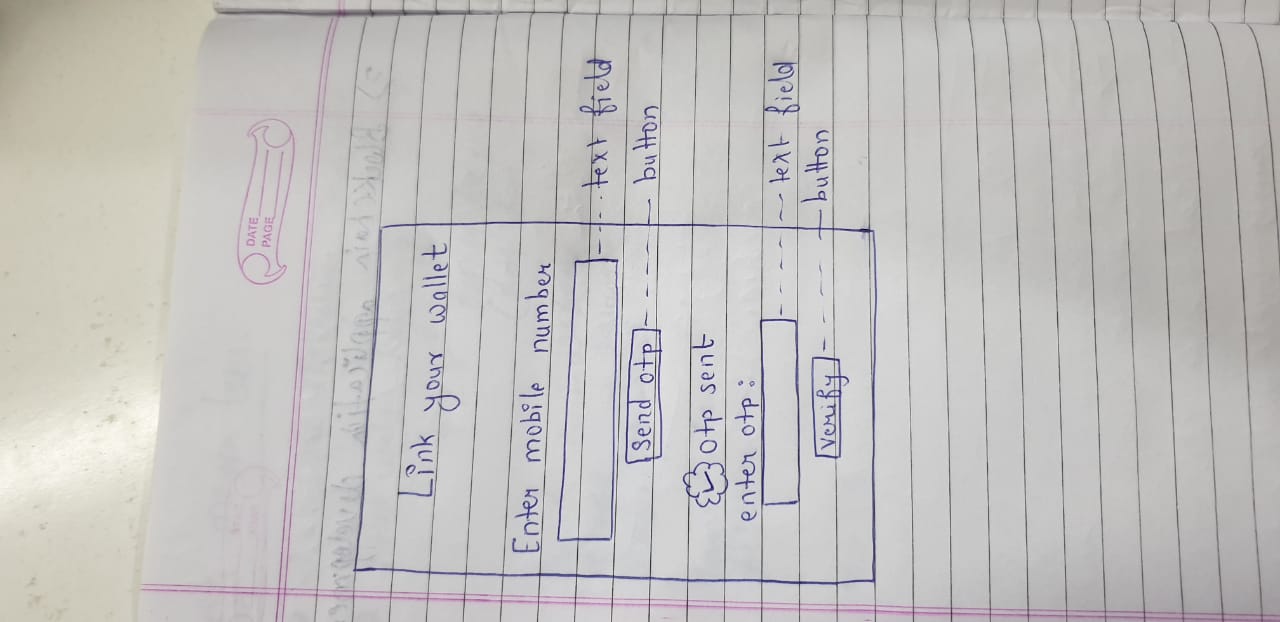 DATE
PAGE
Link your wallet
Enter mobile number
text field
Send otp
button
otp sent
enter otp:
text field
Verify
button